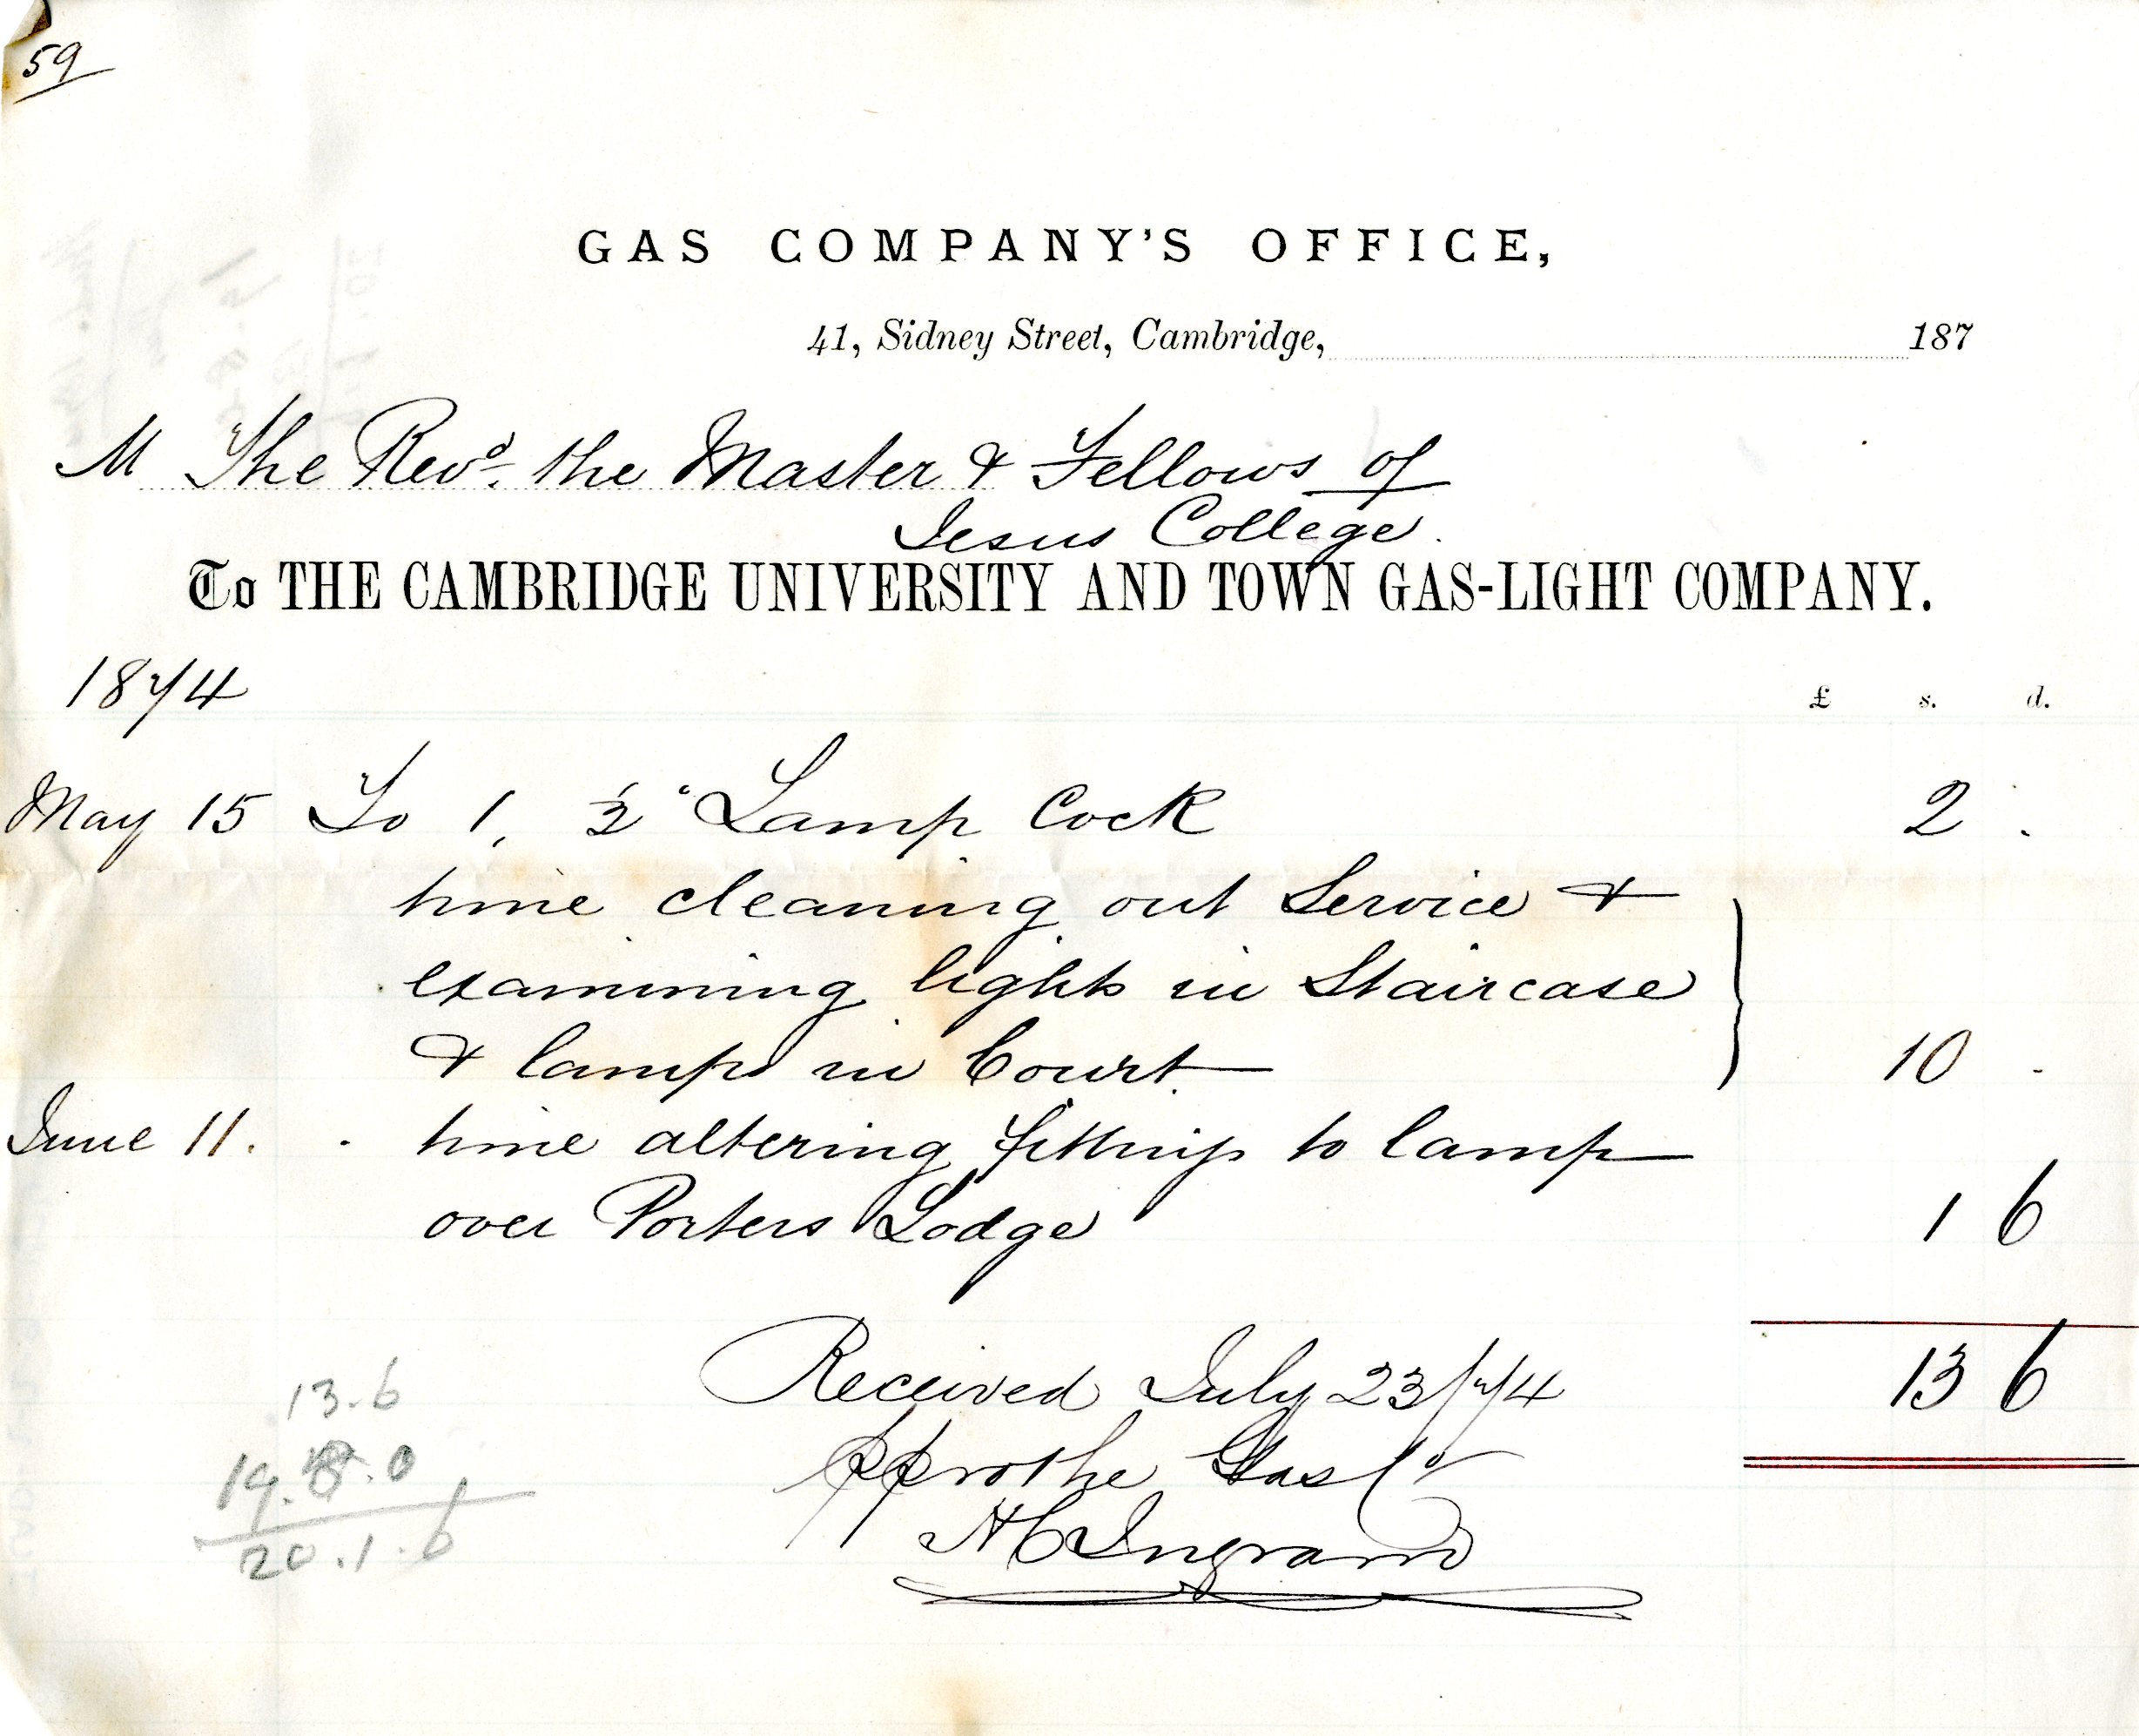 59
GAS COMPANY'S OFFICE,
41, Sidney Street, Cambridge, 187
M The Revd. the Master & Fellows of
Jesus College.
To THE CAMBRIDGE UNIVERSITY AND TOWN GAS-LIGHT COMPANY.
1874
£ s. d.
May 15 To 1, 1/2" Lamp Cock 2 .
time cleaning out Service &
examining lights in Staircase
& lamps in Court 10 .
June 11. . time altering fittings to lamp
over Porters Lodge 1 6
13 6
Received July 23/74
pp the Gas Co
H C Ingram
13.6
19.8.0
20.1.6